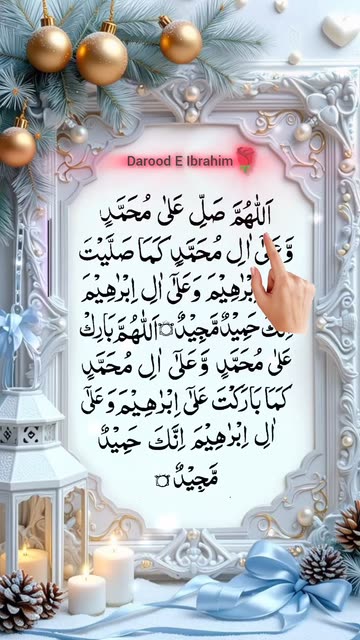 Darood E Ibrahim
اَللّٰهُمَّ صَلِّ عَلٰى مُحَمَّدٍ
وَّعَلٰٓى اٰلِ مُحَمَّدٍ كَمَا صَلَّيْتَ
اِبْرٰهِيْمَ وَعَلٰٓى اٰلِ اِبْرٰهِيْمَ
اِنَّكَ حَمِيْدٌ مَّجِيْدٌ ۝ اَللّٰهُمَّ بَارِكْ
عَلٰى مُحَمَّدٍ وَّعَلٰٓى اٰلِ مُحَمَّدٍ
كَمَا بَارَكْتَ عَلٰٓى اِبْرٰهِيْمَ وَعَلٰٓى
اٰلِ اِبْرٰهِيْمَ اِنَّكَ حَمِيْدٌ
مَّجِيْدٌ ۝